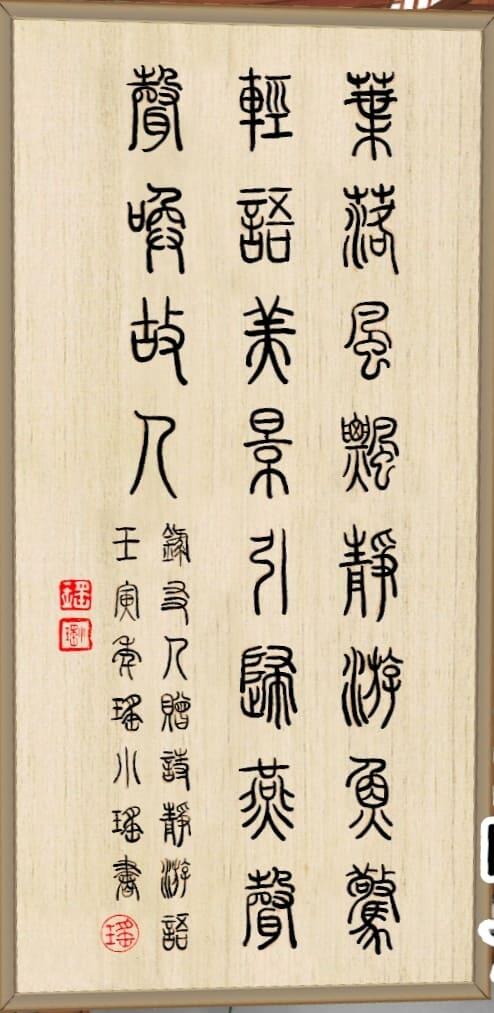 葉落風飄靜游魚驚
輕語美景引歸燕聲
聲喚故人
錄友人贈詩靜游語
壬寅年瑤小瑤書
瑤